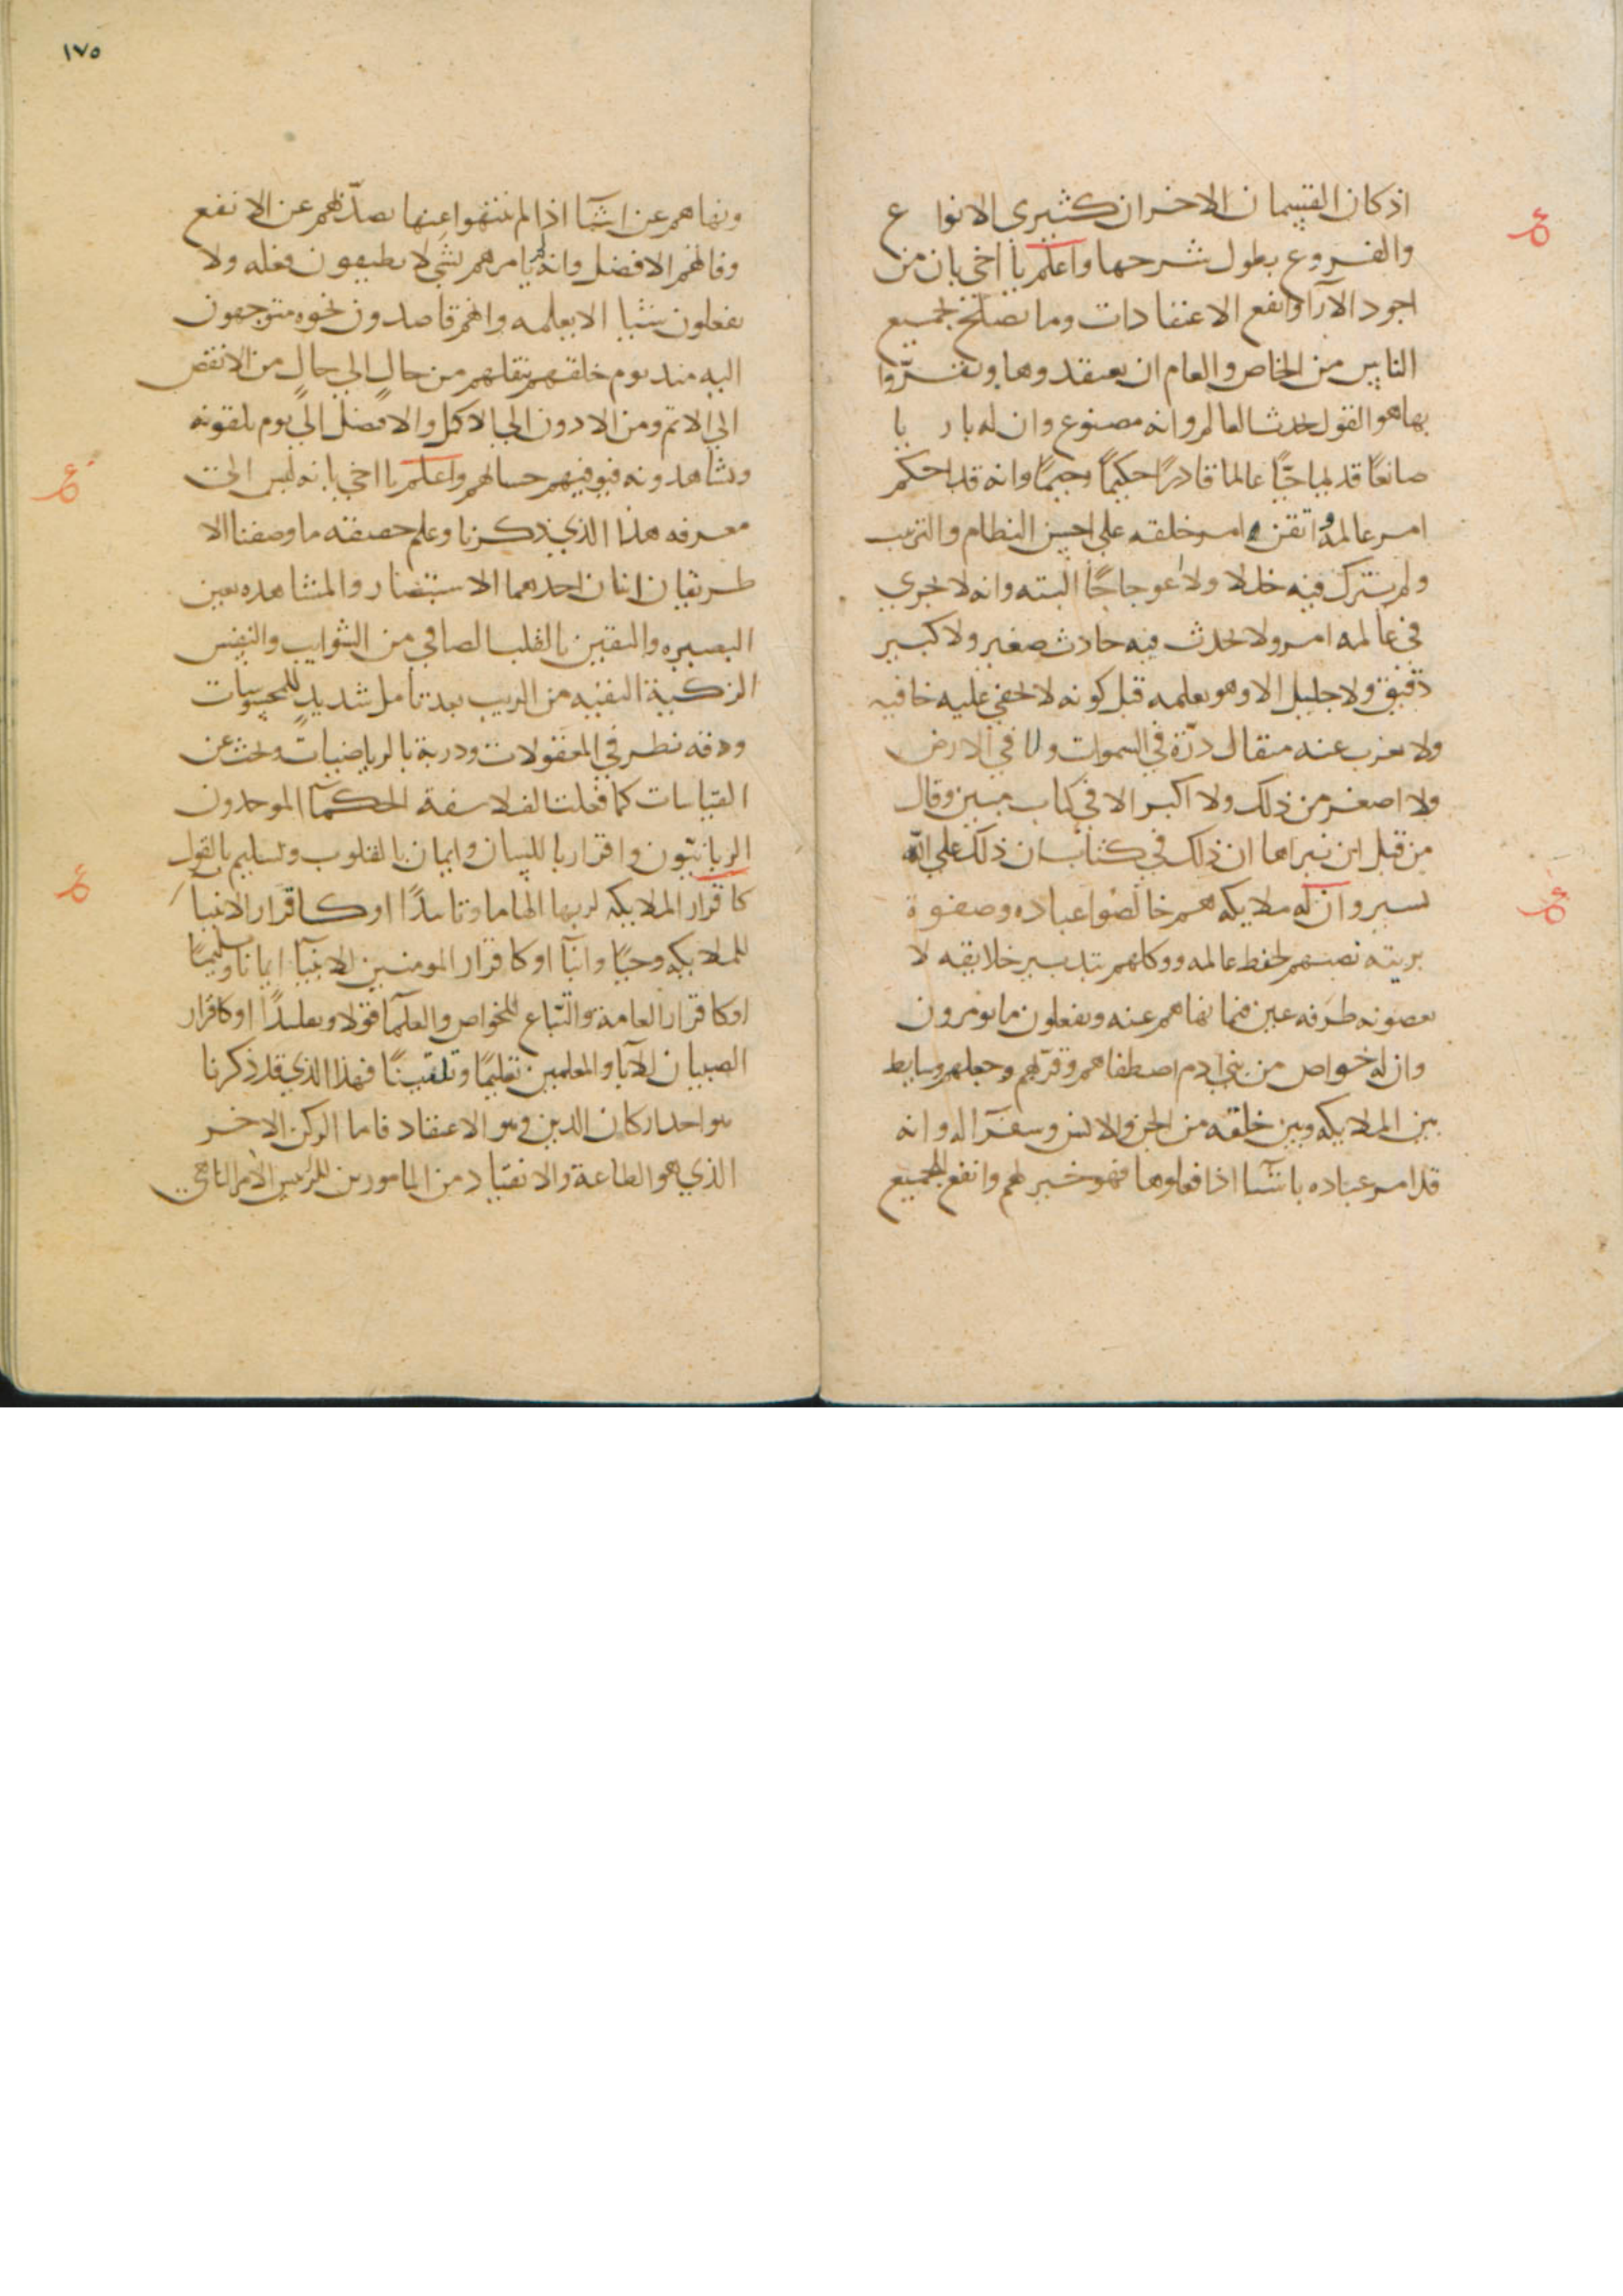 اذ كان القسمان الاخران كثيرى الانواع
والفروع يطول شرحها واعلم يا اخي بان من
اجود الآرا وانفع الاعتقادات وما يصلح لجميع
الناس من الخاص والعام ان يعتقدوها ويقرّوا
بها هو القول بحدث العالم وانه مصنوع وان له باريا
صانعًا قديما حيًّا عالما قادرًا حكيمًا رحيمًا وانه قد احكم
امر عالمه واتقن امر خلقه على احسن النظام والترتيب
ولم يترك فيه خللا ولا اعوجاجًا البته وانه لا يجري
في عالمه امر ولا يحدث فيه حادث صغير ولا كبير
دقيق ولا جليل الا وهو يعلمه قبل كونه لا تخفي عليه خافيه
ولا يعزب عنه مثقال ذرّة في السموات ولا في الارض
ولا اصغر من ذلك ولا اكبر الا في كتاب مبين وقال
من قبل ان نبراها ان ذلك في كتاب ان ذلك على الله
يسير وان له ملايكه هم خالصوا عباده وصفوة
بريته نصبهم لحفظ عالمه ووكلهم بتدبير خلايقه لا
يعصونه طرفه عين فيما نهاهم عنه ويفعلون ما يومرون
وان له خواص من بني ادم اصطفاهم وقرّبهم وجعلهم وسايط
بين الملايكه وبين خلقه من الجن والانس وسفرآ له وانه
قد امر عباده باشيآ اذا فعلوها فهو خير لهم وانفع للجميع
١٧٥
ونهاهم عن اشيآ اذا لم ينتهوا عنها يصدّهم عن الانفع
وفاتهم الافضل وانه لم يامرهم بشي لا يطيقون فعله ولا
يفعلون شيئا الا بعلمه وانهم قاصدون نحوه متوجهون
اليه منذ يوم خلقهم ينقلهم من حال الي حال من الانقص
الي الاتم ومن الادون الي الاكمل والافضل الي يوم يلقونه
ويشاهدونه فيوفيهم حسابهم واعلم يا اخي بانه ليس الى
معرفه هذا الذي ذكرنا وعلم حقيقه ما وصفنا الا
طريقان اثنان احدهما الاستبصار والمشاهده بعين
البصيره واليقين بالقلب الصافي من الشوايب والنفس
الزكية النقيه من الريب بعد تامل شديد للمحسوسات
ودقه نظر في المعقولات ودربة بالرياضيات وبحث عن
القياسات كما فعلت الفلاسفة الحكمآ الموحدون
الربانيّون واقرار باللسان وايمان بالقلوب وتسليم بالقول
كاقرار الملايكه لربها الهاما وتاييدًا او كاقرار الانبيا
للملايكه وحيًا وانبآ او كاقرار المومنين للانبيآ ايمانا وتسليمًا
او كاقرار العامة والتّباع للخواص والعلمآ قولا وتقليدًا او كاقرار
الصبيان للابا والمعلمين تعليمًا وتلقينًا فهذا الذي قد ذكرنا
هو احد اركان الدين وهو الاعتقاد فاما الركن الاخر
الذي هو الطاعة والانقياد من المامورين للرئيس الآمر الناهي